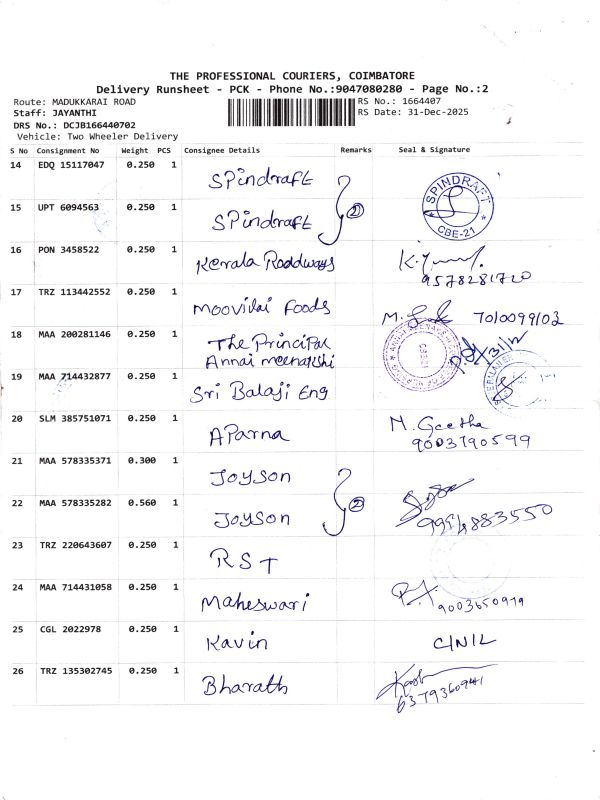 THE PROFESSIONAL COURIERS, COIMBATORE
Delivery Runsheet - PCK - Phone No.:9047080280 - Page No.:2
Route: MADUKKARAI ROAD
RS No.: 1664407
Staff: JAYANTHI
RS Date: 31-Dec-2025
DRS No.: DCJB166440702
Vehicle: Two Wheeler Delivery
S No Consignment No Weight PCS Consignee Details Remarks Seal & Signature
14 EDQ 15117047 0.250 1 Spindraft
SPINDRAFT
CBE-21
15 UPT 6094563 0.250 1 Spindraft 2
16 PON 3458522 0.250 1 Kerala Roadways
9578281720
17 TRZ 113442552 0.250 1 Moovilai Foods 7010099102
18 MAA 200281146 0.250 1 The Principal
Annai meenakshi
19 MAA 714432877 0.250 1 Sri Balaji Eng
20 SLM 385751071 0.250 1 Aparna M. Geetha
9003790599
21 MAA 578335371 0.300 1 Joyson
22 MAA 578335282 0.560 1 Joyson 2
9994883550
23 TRZ 220643607 0.250 1 RST
24 MAA 714431058 0.250 1 Maheswari
9003650979
25 CGL 2022978 0.250 1 Kavin
26 TRZ 135302745 0.250 1 Bharath